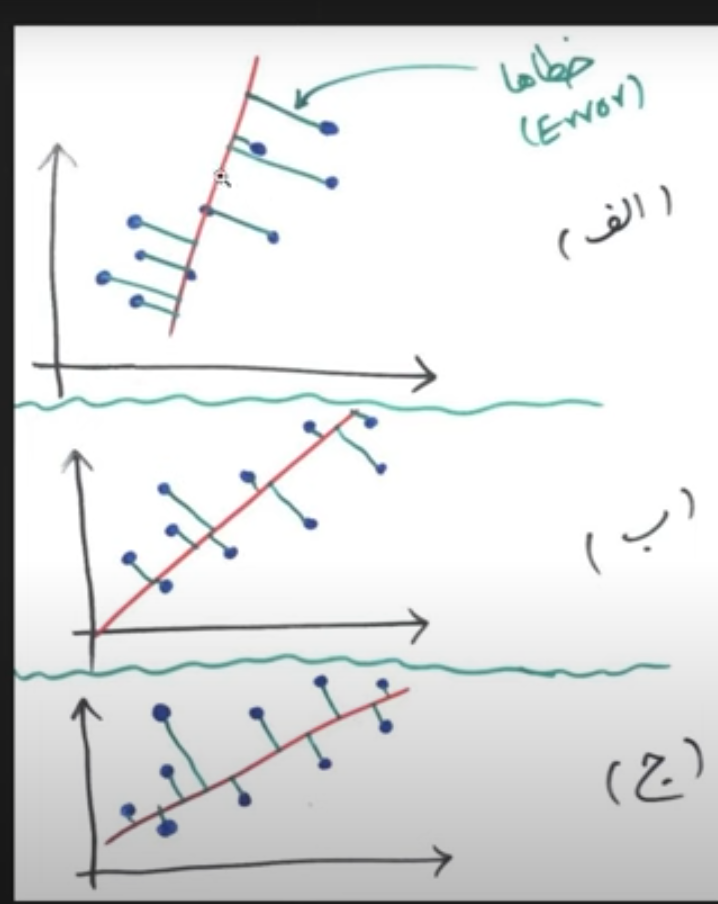 خطاها
(Error)
(الف)
(ب)
(ج)